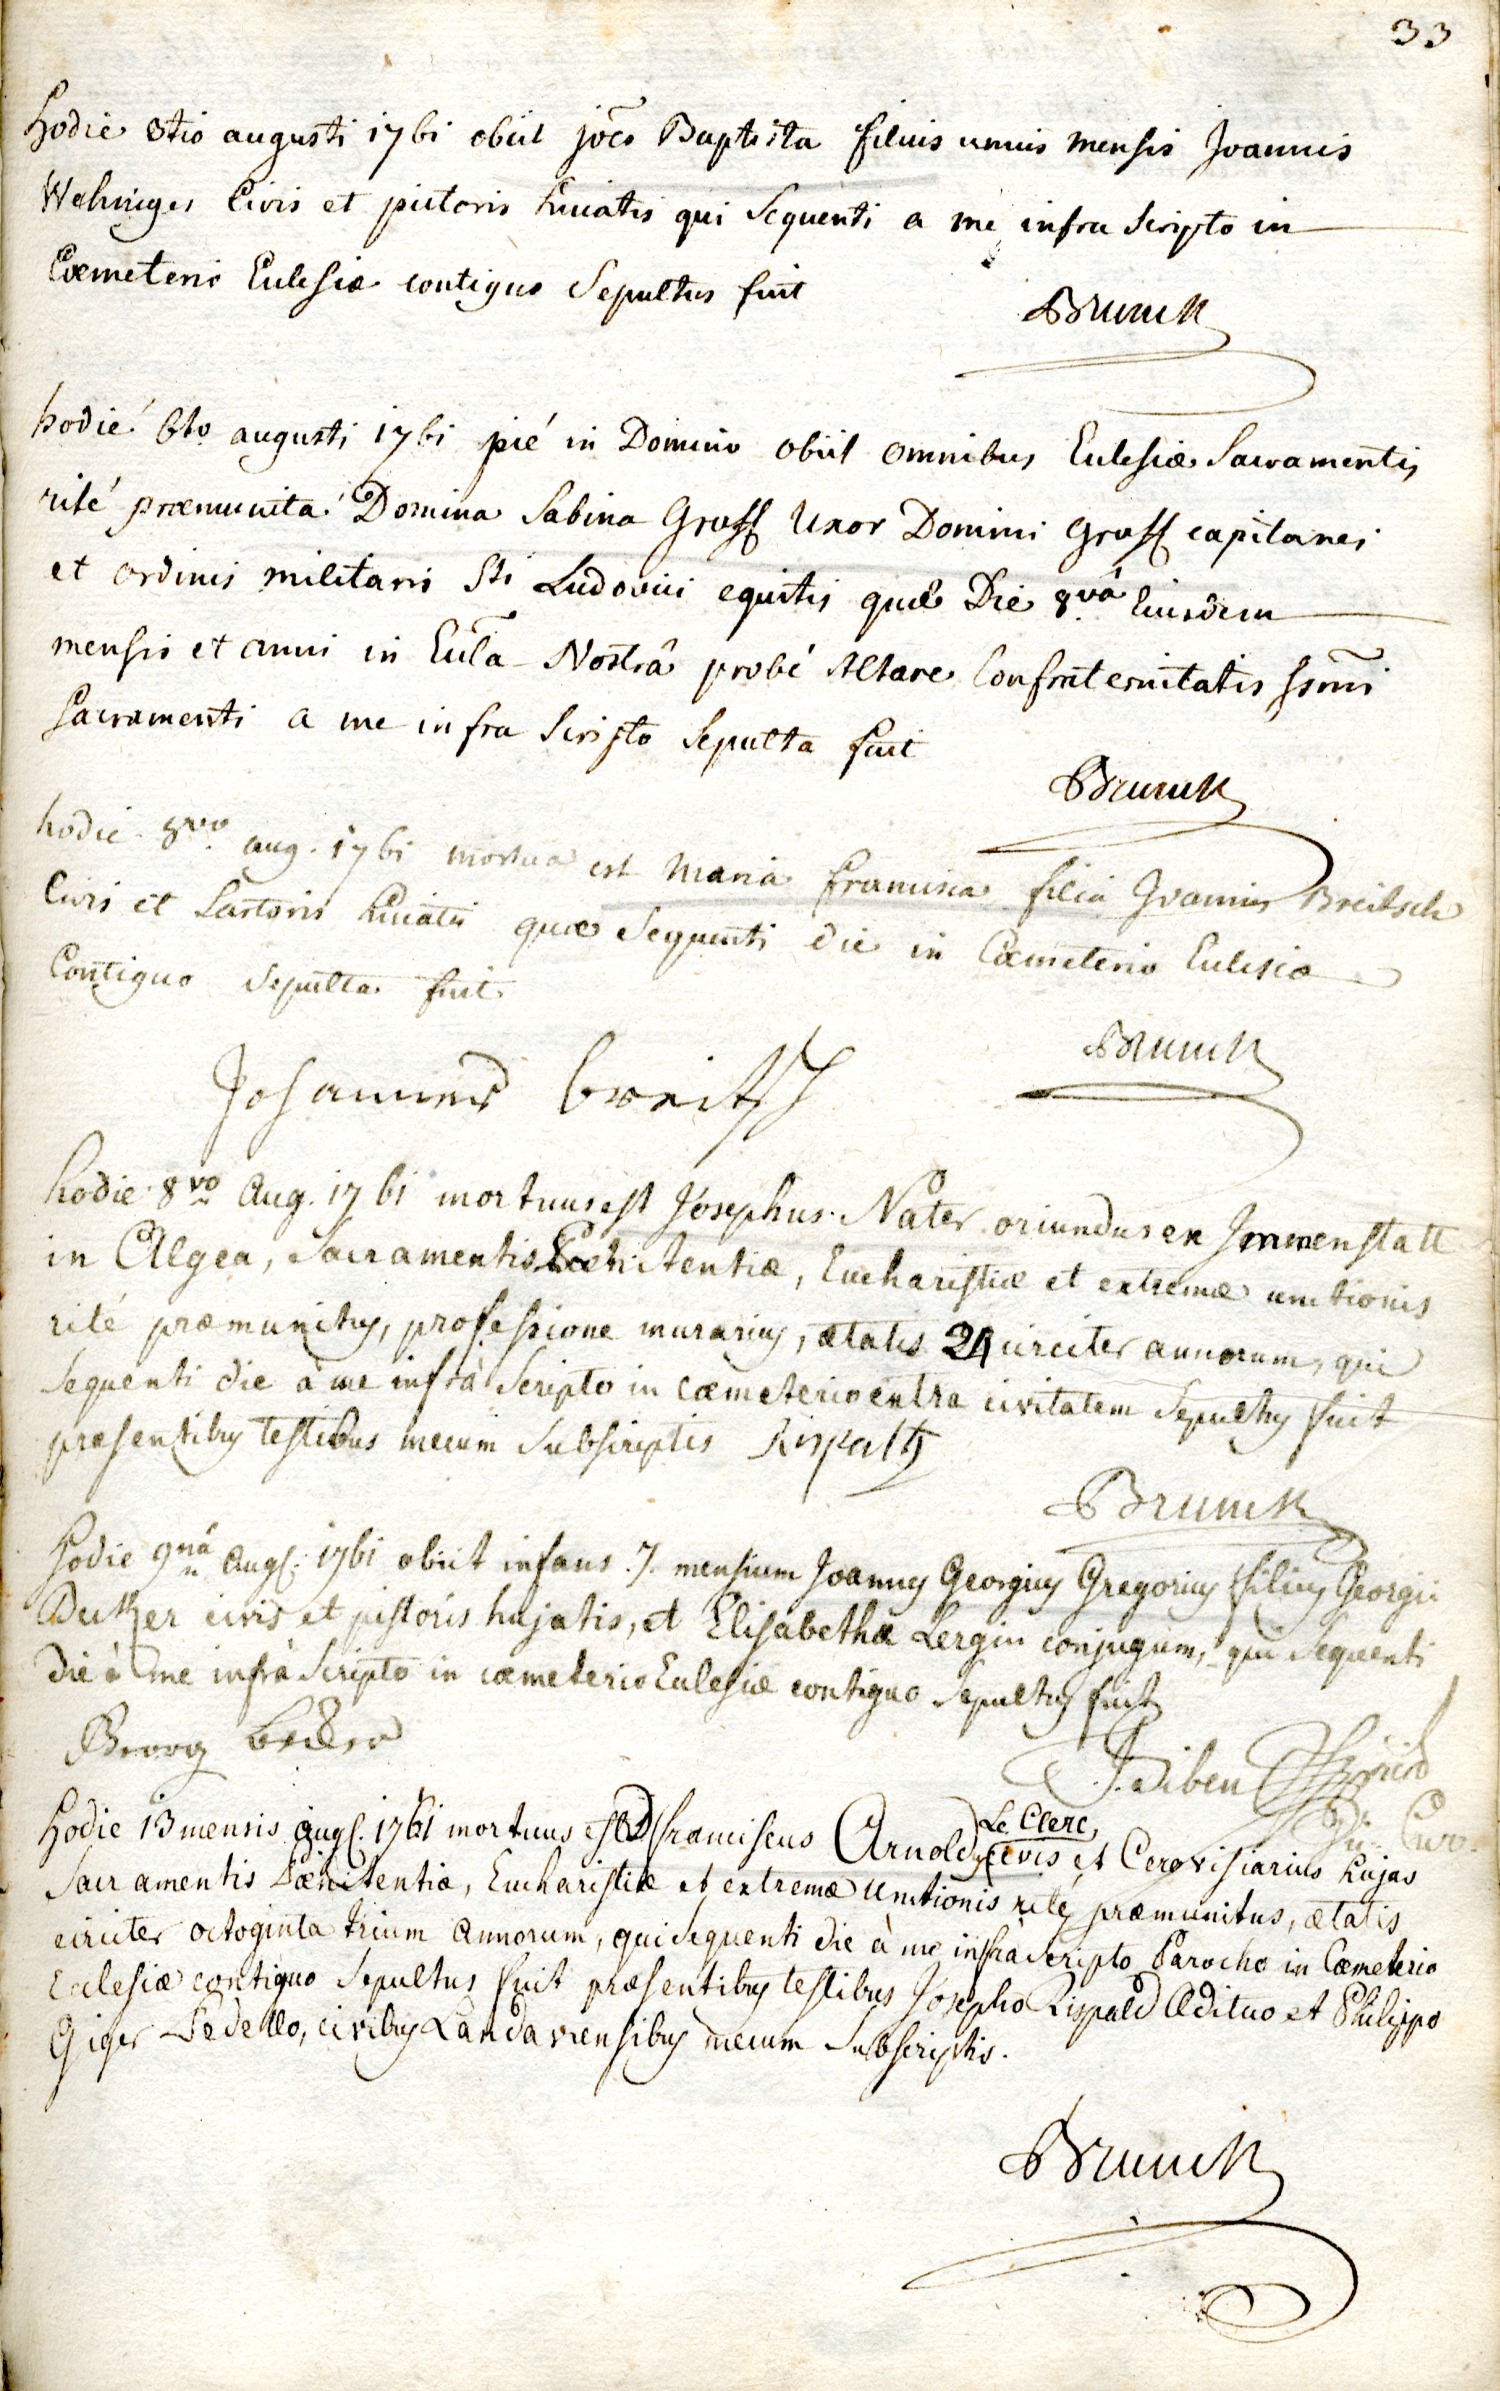 33
hodie 3tio augusti 1761 obiit jōēs Baptista filius unius mensis Joannis
Wehniger Civis et pictoris huiatis qui sequenti a me infra scripto in
Cœmeterio Eclesiæ contiguo Sepultus fuit
Brunck
hodié 6to augusti 1761 pié in Domino obiit omnibus Eclesiæ Sacramentis
rité præmunita Domina Sabina Groff Uxor Domini Groff capitanei
et ordinis militaris Sti Ludovici equitis quæ Die 8vâ Eiusdem
mensis et anni in Eccl̄a Nostrâ propé Altare Confraternitatis ssm̄i
Sacramenti a me infra Scripto Sepulta fuit
Brunck
hodie 8vo aug. 1761 mortua est Maria francisca filia Joannis Breitsch
Civis et Sartoris huiatis quæ sequenti die in Cœmeterio Eclesiæ
Contiguo Sepulta fuit
Brunck
Johannes breitsch
hodie 8vo Aug. 1761 mortuus est Josephus Nater oriundus ex Immenstatt
in Algea, Sacramentis Pœnitentiæ, Eucharistiæ et extremæ unctionis
rité præmunitus, professione murarius, ætatis 24 circiter annorum, qui
sequenti die à me infrà Scripto in cœmeterio extra civitatem Sepultus fuit
præsentibus testibus mecum Subscriptis Rispalt
Brunck
hodie 9nâ Augs. 1761 obiit infans 7 mensium Joannes Georgius Gregorius filius Georgii
Decker civis et pistoris hujatis, et Elisabethæ Lergin conjugum, qui sequenti
die à me infrà Scripto in cœmeterio Eclesiæ contiguo Sepultus fuit
Georg becker
hodie 13 mensis Augs. 1761 mortuus est D franciscus Arnold Le Clerc, civis et Cerevisiarius hujas
Sacramentis Pœnitentiæ, Eucharistiæ et extremæ Unctionis rité præmunitus, ætatis
circiter octoginta trium Annorum, qui sequenti die à me infrà scripto Parocho in Cœmeterio
Eclesiæ contiguo Sepultus fuit præsentibus testibus Josepho Rispald Ædituo et Philippo
Giger Pedello, civibus Landaviensibus mecum Subscriptis.
Brunck